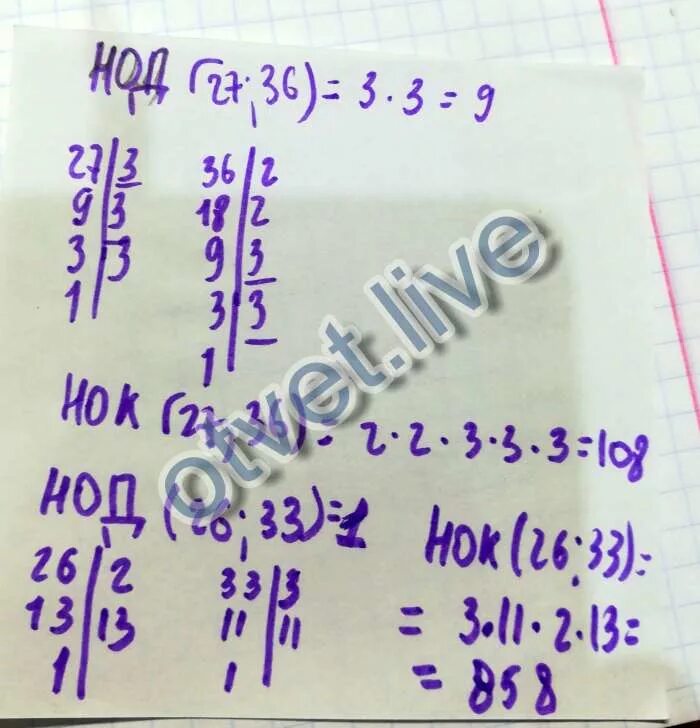 НОД (27; 36) = 3 · 3 = 9
27 | 3
9 | 3
3 | 3
1 |
36 | 2
18 | 2
9 | 3
3 | 3
1 |
НОК (27; 36) = 2 · 2 · 3 · 3 · 3 = 108
НОД (26; 33) = 1
26 | 2
13 | 13
1 |
33 | 3
11 | 11
1 |
НОК (26; 33) =
= 3 · 11 · 2 · 13 =
= 858
otvet.live